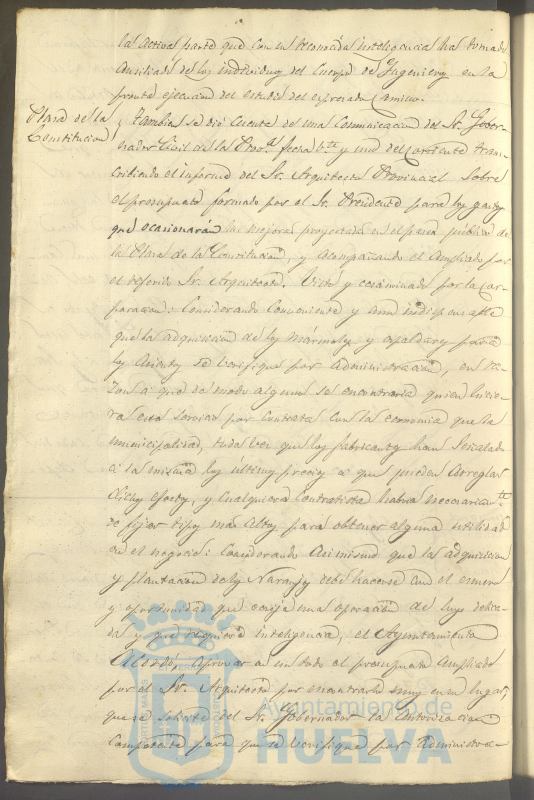 la activa parte que con su reconocida inteligencia ha tomado
auxiliado de los individuos del Cuerpo de Ingenieros en la
pronta ejecucion del estudio del espresado Camino.
Plaza de la
Constitucion
Tambien se dió cuenta de una comunicacion del Sr. Gober-
nador Civil de la Prov.ª fecha y uno del corriente trans-
cribiendo el informe del Sr. Arquitecto Provincial sobre
el presupuesto formado por el Sr. Presidente para los gastos
que ocasionarán las mejoras proyectadas en el paseo publico de
la Plaza de la Constitucion, y acompañando el ampliado por
el referido Sr. Arquitecto. Visto y ecsaminado por la Cor-
poracion: Considerando conveniente y aun indispensable
que la adquisicion de los mármoles y espaldares para
los asientos se verifique por administracion, en ra-
zon a que de modo alguno se encontraria quien hicie-
ra este servicio por contrata con la economia que la
municipalidad, toda vez que los fabricantes han señalado
a la misma los últimos precios a que pueden arreglar
dichos efectos, y cualquiera contratista habria necesariam.te
de fijar tipos mas altos para obtener alguna utilidad
en el negocio: Considerando asimismo que la adquisicion
y plantacion de los Naranjos debe hacerse con el esmero
y oportunidad que ecsije una operacion de suyo delica-
da y que requiere inteligencia, el Ayuntamiento
Acordó, aprovar en un todo el presupuesto ampliado
por el Sr. Arquitecto por encontrarlo muy en su lugar,
que se solicite del Sr. Gobernador la autorizacion
competente para que se verifique por administra-
Ayuntamiento de
HUELVA